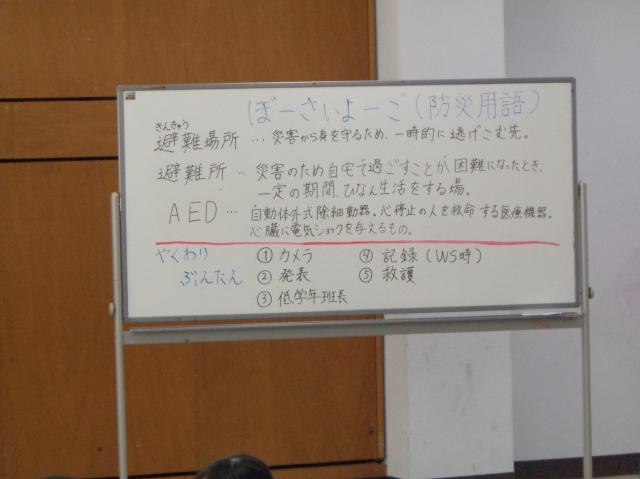 ぼーさいよーご(防災用語)
きんきゅう
避難場所 … 災害から身を守るため、一時的に逃げこむ先。
避難所 … 災害のため自宅で過ごすことが困難になったとき、
一定の期間、ひなん生活をする場。
AED … 自動体外式除細動器。心停止の人を救命する医療機器。
心臓に電気ショックを与えるもの。
やくわり
ぶんたん
① カメラ ④ 記録(WS時)
② 発表 ⑤ 救護
③ 低学年班長